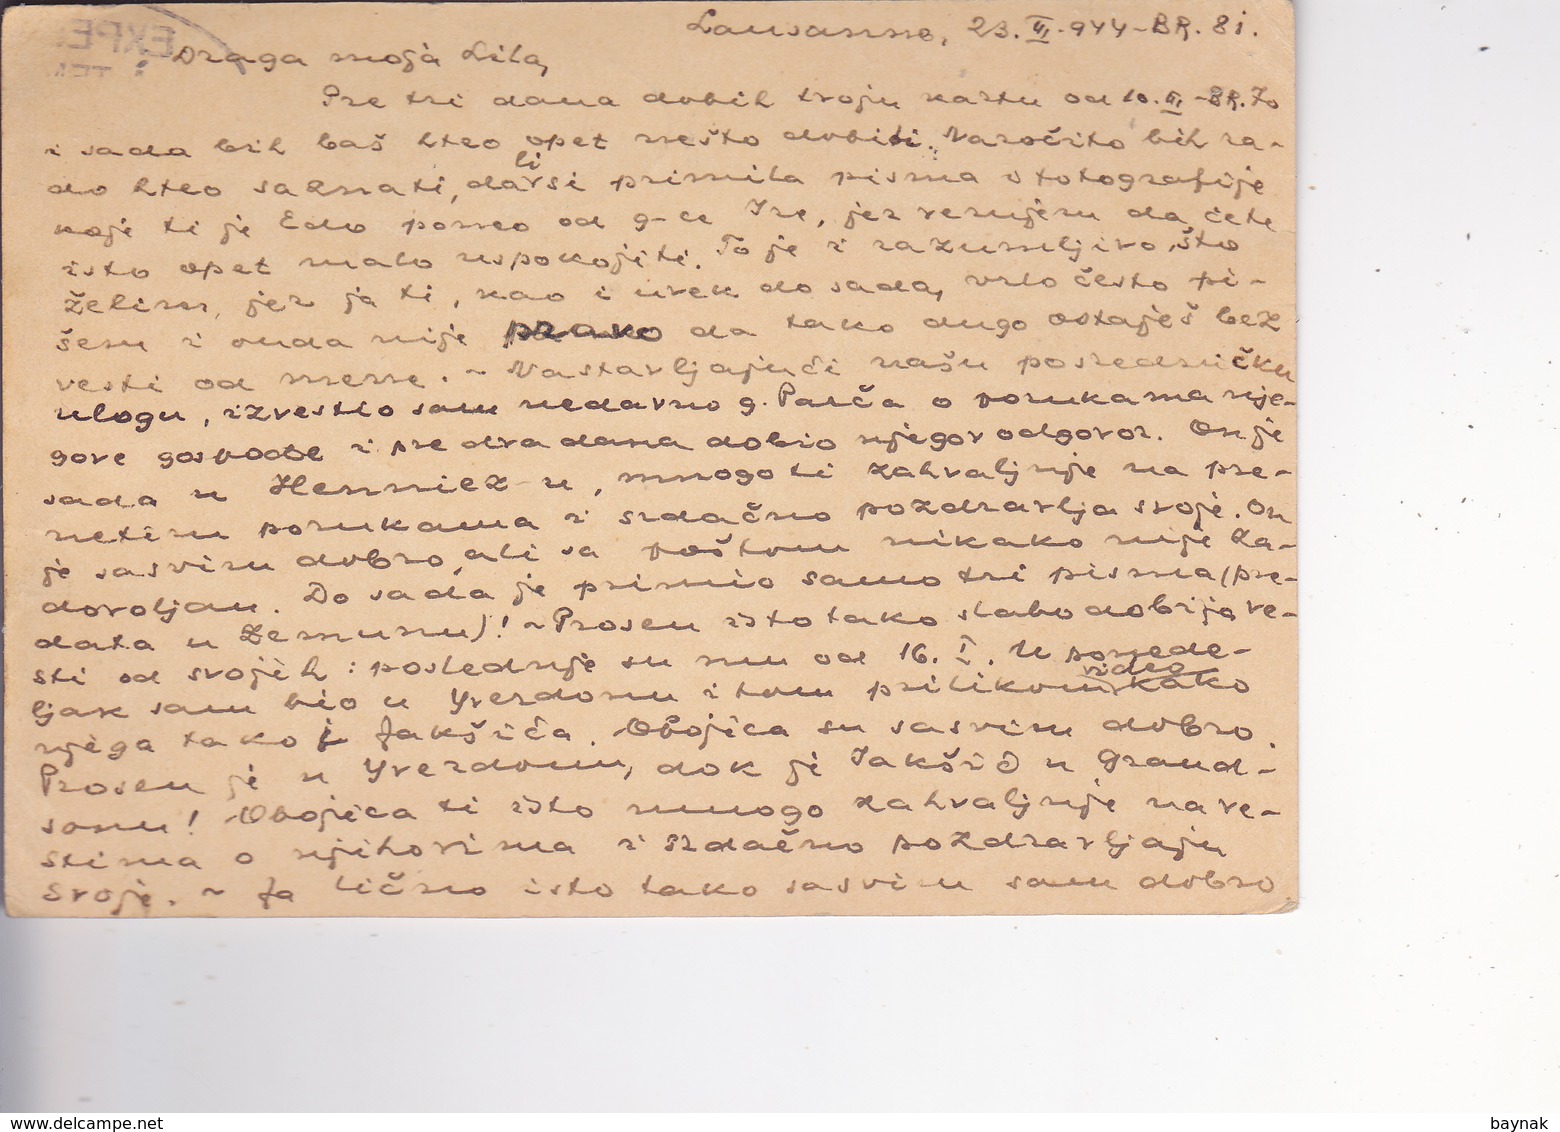 Lausanne, 23. III. 944 - BR. 81.
Draga moja Lila,
Pre tri dana dobih tvoju kartu od 10. III. - BR. 70
i sada bih baš hteo opet nešto dobiti. Naročito bih ra-
do hteo saznati, da li si primila pisma s fotografije
koje ti je Edo poneo od g-ce Ire, jer verujem da ćete
isto opet malo uspokojiti. To je i razumljivo, što
želim, jer ja ti, kao i uvek do sada, vrlo često pi-
šem i onda nije pravo da tako dugo ostaješ bez
vesti od mene. - Nastavljajući našu posredničku
ulogu, izvestio sam nedavno g. Parča o porukama nje-
gove gospođe i pre dva dana dobio njegov odgovor. On je
sada u Henniez-u, mnogo ti zahvaljuje na pre-
netim porukama i srdačno pozdravlja svoje. On
je sasvim dobro, ali sa poštom nikako nije za-
dovoljan. Do sada je primio samo tri pisma (pre-
data u Zemunu)! - Prosen isto tako slabo dobija ve-
sti od svojih: poslednje su mu od 16. I. U ponede-
ljak sam bio u Yverdonu i tom prilikom video kako
njega tako i Jakšića. Obojica su sasvim dobro.
Prosen je u Yverdonu, dok je Jakšić u Grand-
sonu! Obojica ti isto mnogo zahvaljuje na ve-
stima o njihovima i srdačno pozdravljaju
svoje. - Ja lično isto tako sasvim sam dobro
EXPE
baynak
www.delcampe.net